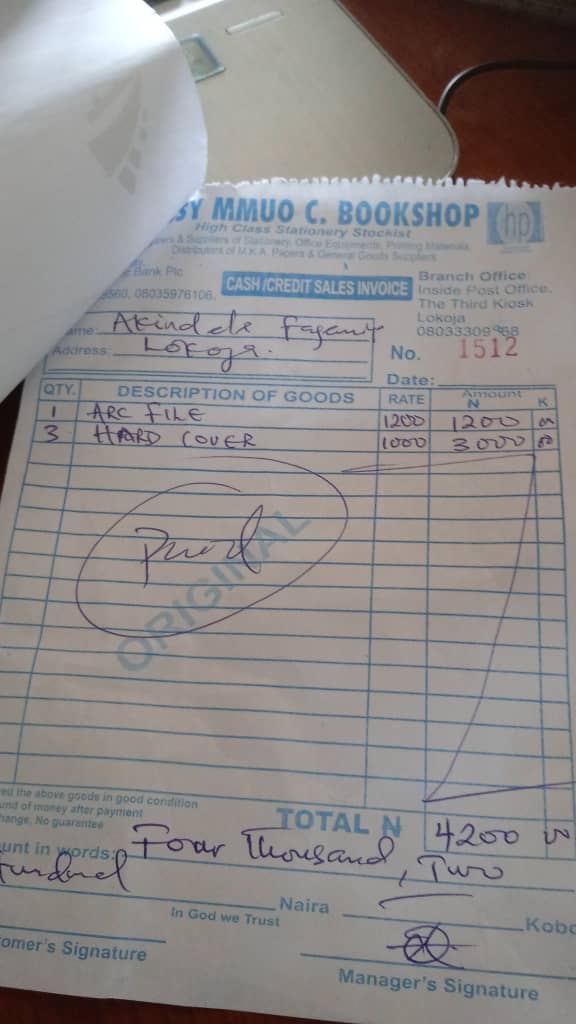 SY MMUO C. BOOKSHOP
hp
High Class Stationery Stockist
& Suppliers of Stationery, Office Equipments, Printing Materials
Distributors of M.K.A. Papers & General Goods Suppliers
Bank Plc
560, 08035976106.
CASH /CREDIT SALES INVOICE
Branch Office:
Inside Post Office,
The Third Kiosk
Lokoja
08033309968
ame: Akindele
Address: Lokoja.
No. 1512
Date:
QTY. DESCRIPTION OF GOODS RATE Amount N K
1 ARC FILE 1200 1200 00
3 HARD COVER 1000 3000 00
Paid
ORIGINAL
ed the above goods in good condition
und of money after payment
hange, No guarantee
TOTAL N 4200 00
unt in words: Four Thousand, Two
Hundred
Naira Kobo
In God we Trust
omer's Signature
Manager's Signature